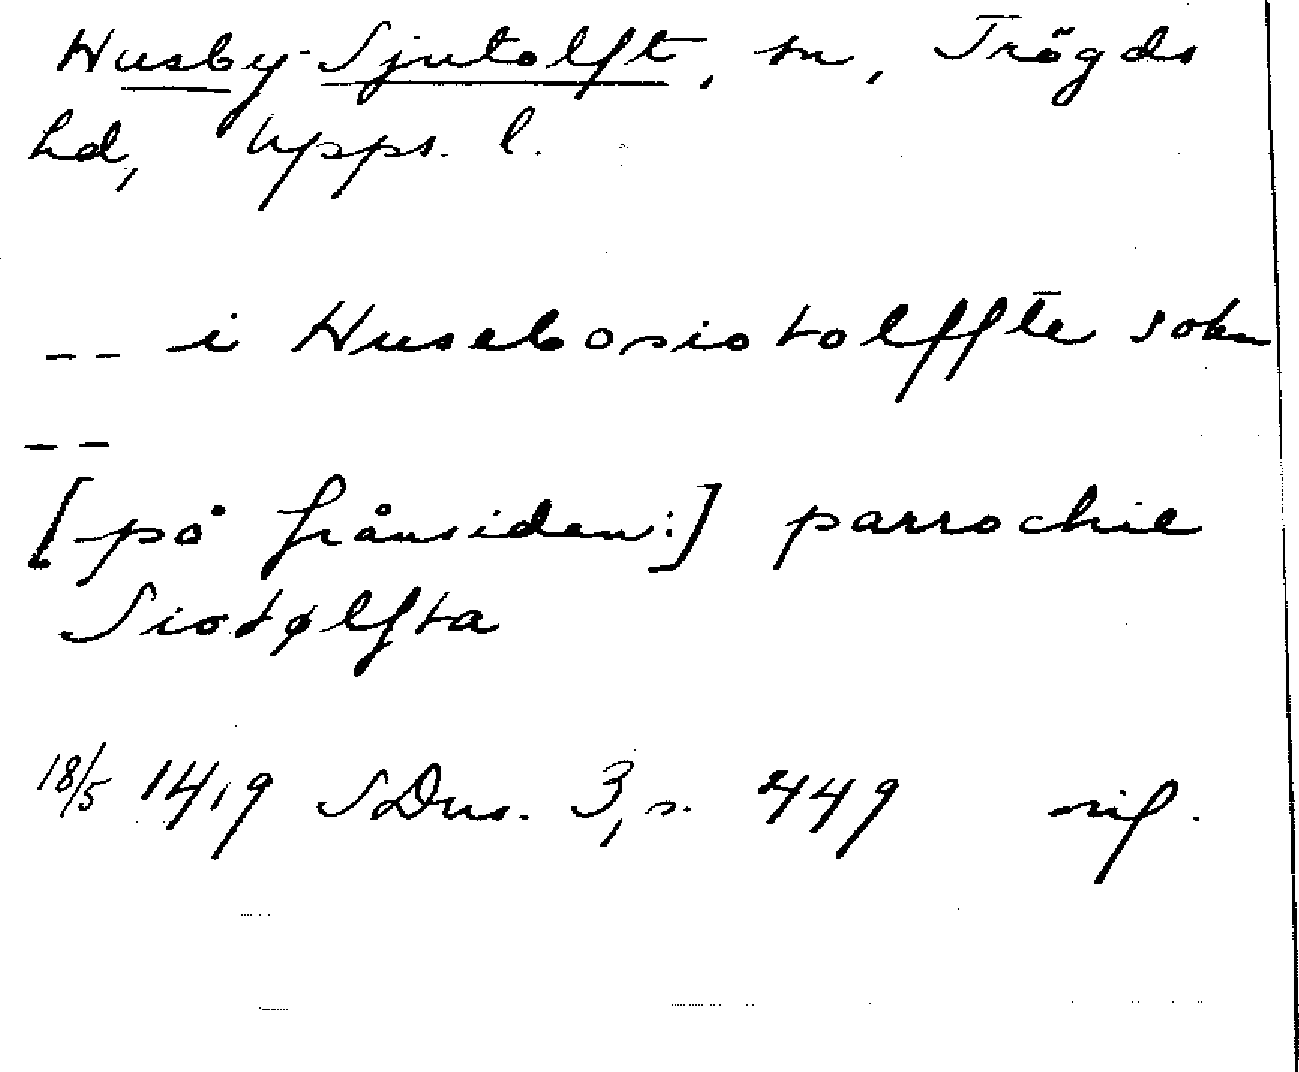 Husby-Sjutolft, sn, Trögds
hd, Upps. l.
-- i Husabosiotolffte sokn
--
[på frånsiden:] parrochie
Siotølfta
18/5 1419 SDns. 3, s. 449 rif.